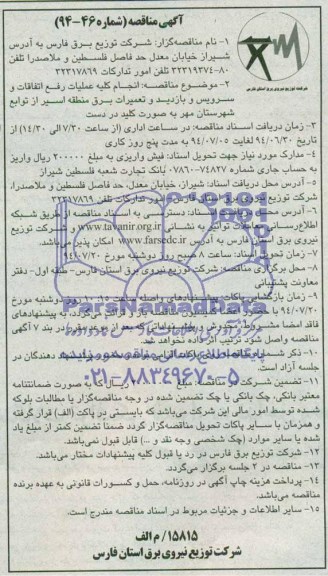 آگهی مناقصه (شماره ۴۶-۹۴)
شرکت توزیع نیروی برق استان فارس
۱- نام مناقصه‌گزار: شرکت توزیع برق فارس به آدرس
شیراز خیابان معدل حد فاصل فلسطین و ملاصدرا تلفن
۸۰-۳۲۳۱۹۳۷۴ تلفن امور تدارکات ۳۲۳۱۷۸۶۹
۲- موضوع مناقصه: انجام کلیه عملیات رفع اتفاقات و
سرویس و بازدید و تعمیرات برق منطقه اسیر از توابع
شهرستان مهر به صورت کلید در دست
۳- زمان دریافت اسناد مناقصه: در ساعات اداری (از ساعت ۷/۳۰ الی ۱۴/۳۰) از
تاریخ ۹۴/۰۶/۳۰ لغایت ۹۴/۰۷/۰۵ به مدت پنج روز کاری
۴- مدارک مورد نیاز جهت تحویل اسناد: فیش واریزی به مبلغ ۲۰۰۰۰۰ ریال واریز
به حساب جاری شماره ۰۷۸۶۰۰۷۴۸۲۷ بانک تجارت شعبه فلسطین شیراز
۵- آدرس محل دریافت اسناد: شیراز، خیابان معدل، حد فاصل فلسطین و ملاصدرا،
شرکت توزیع نیروی برق استان فارس امور تدارکات تلفن ۳۲۳۱۷۸۶۹
۶- آدرس محل دریافت اسناد: دسترسی به اسناد مناقصه از طریق شبکه
اطلاع‌رسانی معاملات توانیر به نشانی www.tavanir.org.ir و شرکت توزیع
نیروی برق استان فارس به آدرس www.farsedc.ir امکان پذیر می‌باشد.
۷- زمان تحویل اسناد: ساعت ۸ صبح روز دوشنبه مورخ ۹۴/۰۷/۲۰
۸- محل برگزاری مناقصه: شرکت توزیع نیروی برق استان فارس- طبقه اول- دفتر
معاونت پشتیبانی
۹- زمان بازگشایی پاکات پیشنهادهای واصله ساعت ۱۰:۱۵ روز دوشنبه مورخ
۹۴/۰۷/۲۰ با حضور اعضا کمیسیون مناقصه باز و قرائت می‌گردد، به پیشنهادهای
فاقد امضا مشروط، مخدوش و پیشنهاداتی که بعد از موعد مقرر در بند ۷ آگهی
مناقصه واصل شود ترتیب اثر داده نخواهد شد.
جلسه آزاد است.
۱۱- تضمین شرکت در مناقصه: مبلغ ریال که به صورت ضمانتنامه
معتبر بانکی، چک بانکی یا چک تضمین شده در وجه مناقصه‌گزار یا مطالبات بلوکه
شده توسط امور مالی این شرکت می‌باشد که بایستی در پاکت (الف) قرار گرفته
و همزمان با سایر پاکات تحویل مناقصه‌گزار گردد ضمنا تضمین کمتر از مبلغ یاد
شده یا سایر موارد (چک شخصی وجه نقد و ...) قابل قبول نمی‌باشد.
۱۲- شرکت توزیع برق فارس در رد یا قبول کلیه پیشنهادات مختار می‌باشد.
۱۳- مناقصه در ۲ جلسه برگزار می‌گردد.
۱۴- پرداخت هزینه چاپ آگهی در روزنامه، حمل و کسورات قانونی به عهده برنده
مناقصه می‌باشد.
۱۵- سایر اطلاعات و جزئیات مربوط در اسناد مناقصه مندرج است.
۱۵۸۱۵/ م الف
شرکت توزیع نیروی برق استان فارس
ParsNamadData
۰۲۱-۸۸۳۴۹۶۷۰-۵